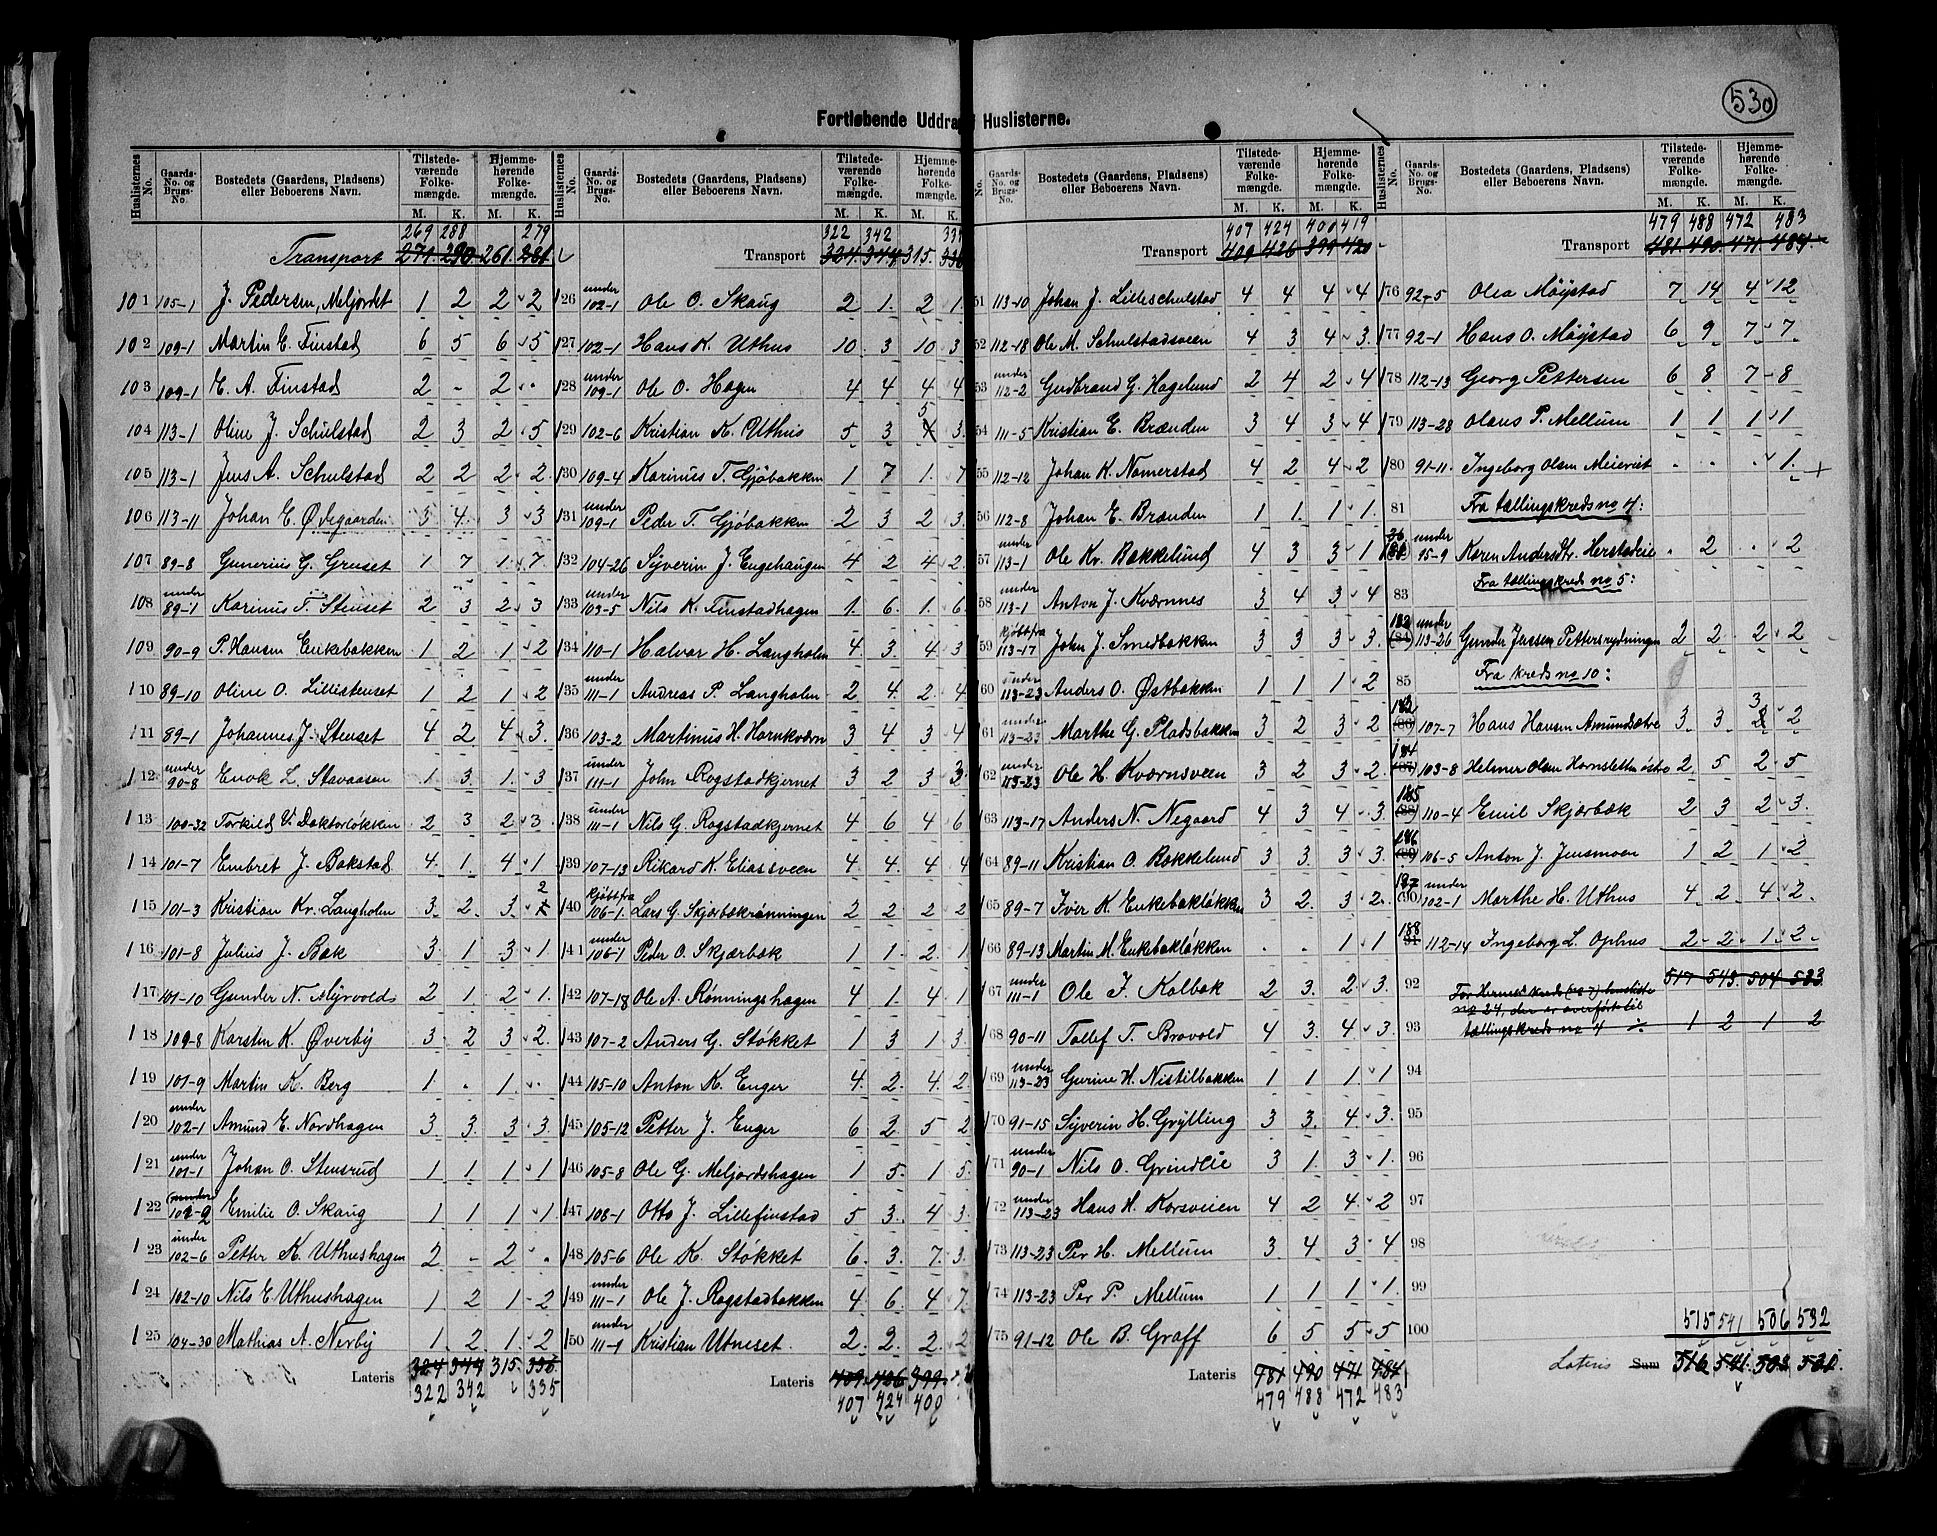 530
Fortløbende Uddra Huslisterne.
Huslisternes No. Gaards-No. og Brugs-No. Bostedets (Gaardens, Pladsens) eller Beboerens Navn. Tilstedeværende Folkemængde. M. K. Hjemmehørende Folkemængde. M. K.
269 288 279
Transport 271. 290. 261. 281.
101 105-1 J. Pedersen, Meljordet 1 2 2 2
102 109-1 Martin E. Finstad 6 5 6 5
103 109-1 E. A. Finstad 2 - 2 -
104 113-1 Oline J. Schulstad 2 3 2 5
105 113-1 Jens A. Schulstad 2 2 2 2
106 113-11 Johan E. Ødegaarden 3 4 3 3
107 89-8 Gunerius G. Gruset 1 7 1 7
108 under 89-1 Karinus T. Stenset 2 3 2 3
109 90-9 P. Hansen Enkebakken 1 2 1 2
110 89-10 Oline O. Lillestenset 1 2 1 2
111 89-1 Johannes J. Stenset 4 2 4 3
112 under 90-8 Enok L. Stavaasen 1 3 1 3
113 100-32 Torkild V. Doktorløkken 2 3 2 3
114 101-7 Embret J. Bakstad 4 1 4 1
115 101-3 Kristian Kr. Langholen 3 2 3 2
116 101-8 Julius J. Bak 3 1 3 1
117 101-10 Gunder N. Myrvold 2 1 2 1
118 109-8 Karsten K. Øverby 3 2 3 2
119 101-9 Martin K. Berg 1 - 1 -
120 under 102-1 Amund E. Nordhagen 3 3 3 3
121 under 101-1 Johan O. Stensrud 1 1 1 1
122 (under) 102-2 Emilie O. Skaug 1 1 1 1
123 under 102-6 Petter K. Uthushagen 2 - 2 -
124 102-10 Nils E. Uthushagen 1 2 1 2
125 104-30 Mathias A. Nerby 1 2 1 2
Lateris 324 344 315. 336
322 342 335
Huslisternes No. Gaards-No. og Brugs-No. Bostedets (Gaardens, Pladsens) eller Beboerens Navn. Tilstedeværende Folkemængde. M. K. Hjemmehørende Folkemængde. M. K.
322 342
Transport 324. 344. 315.
126 under 102-1 Ole O. Skaug 2 1 2 1
127 102-1 Hans K. Uthus 10 3 10 3
128 under 109-1 Ole O. Hagen 4 4 4 4
129 102-6 Kristian K. Uthus 5 3 5 3
130 109-4 Karinus T. Gjøbakken 1 7 1 7
131 under 109-1 Peder T. Gjøbakken 2 3 2 3
132 104-26 Syverin J. Engehaugen 4 2 4 2
133 under 103-5 Nils K. Finstadhagen 1 6 1 6
134 110-1 Halvor H. Langholen 4 3 4 3
135 under 111-1 Andreas P. Langholen 2 4 2 4
136 103-2 Martinus H. Hornkværn 3 4 3 4
137 under 111-1 John Rogstadkjernet 3 2 3 3
138 under 111-1 Nils G. Rogstadkjernet 4 6 4 6
139 107-13 Rikard K. Eliassveen 4 4 4 4
140 kjøbt fra 106-1 Lars G. Skjærbækrønningen 2 2 2 2
141 under 106-1 Peder O. Skjærbæk 1 1 2 1
142 107-18 Ole A. Rønningshagen 4 1 4 1
143 107-2 Anders G. Støkket 1 3 1 3
144 105-10 Anton K. Enger 4 2 4 2
145 105-12 Petter J. Enger 6 2 5 2
146 105-8 Ole G. Meljordshagen 1 5 1 5
147 108-1 Otto J. Lillefinstad 5 3 4 3
148 105-6 Ole K. Støkket 6 3 7 3
149 under 111-1 Ole J. Rogstadbakken 4 6 4 7
150 under 111-1 Kristian Utneset 2 2 2 2
Lateris 409 426 399
407 424 400
No. Gaards-No. og Brugs-No. Bostedets (Gaardens, Pladsens) eller Beboerens Navn. Tilstedeværende Folkemængde. M. K. Hjemmehørende Folkemængde. M. K.
407 424 400 419
Transport 409 426 399 420
51 113-10 Johan J. Lilleschulstad 4 4 4 4
52 112-18 Ole M. Schulstadsveen 4 3 4 3
53 under 112-2 Gudbrand G. Hagelund 2 4 2 4
54 111-5 Kristian E. Brænden 3 4 3 4
55 112-12 Johan K. Nomerstad 4 2 4 2
56 112-8 Johan E. Brænden 1 1 1 1
57 under 113-1 Ole Kr. Bakkelund 4 3 3 1
58 under 113-1 Anton J. Kværnnes 3 4 3 4
59 kjøbt fra 113-17 John J. Smedbakken 3 3 3 3
60 under 113-23 Anders O. Østbakken 1 1 1 2
61 under 113-23 Marthe G. Pladsbakken 3 2 3 2
62 under 113-23 Ole H. Kværnsveen 3 2 3 2
63 113-17 Anders N. Negaard 4 3 4 3
64 89-11 Kristian O. Bakkelund 3 3 3 3
65 89-7 Iver K. Enkebakløkken 3 2 3 2
66 89-13 Martin M. Enkebakløkken - - 1 1
67 under 111-1 Ole J. Kolbak 2 3 2 3
68 90-11 Tollef T. Brovold 4 3 4 3
69 under 113-23 Gurine H. Nistilbakken 1 1 1 1
70 91-15 Syverin H. Grylling 3 3 4 3
71 under 90-1 Nils O. Grindlie 3 1 3 1
72 under 113-23 Hans H. Korsveien 4 2 4 2
73 113-23 Per H. Mellum 3 4 3 4
74 113-23 Per P. Mellum 1 1 1 1
75 91-12 Ole B. Graff 6 5 5 5
Lateris 481 490 471 484
479 488 472 483
Huslisternes No. Gaards-No. og Brugs-No. Bostedets (Gaardens, Pladsens) eller Beboerens Navn. Tilstedeværende Folkemængde. M. K. Hjemmehørende Folkemængde. M. K.
479 488 472 483
Transport 481 490 471 484
176 92-5 Olea Møystad 7 14 4 12
177 92-1 Hans O. Møystad 6 9 7 7
178 112-13 Georg Pettersen 6 8 7 8
179 113-28 Olaus P. Mellum 1 1 1 1
180 91-11 Ingeborg Olsen Meierist - - - 1 +
81 Fra tællingskreds no 4:
under 95-9 Karen Andersdtr. Herstadeie - 2 - 2
Fra tællingskreds no 5:
83
182 (84) under 113-26 Gunder Jensen Pettersrydningen 2 2 2 2
Fra kreds no 10:
85
183 (86) 107-7 Hans Hansen Amundsætre 3 3 3 2
184 (87) 103-8 Helmer Olsen Hornsletten østre 2 5 2 5
185 (88) 110-4 Emil Skjærbæk 2 3 2 3
186 (89) 106-5 Anton J. Jensmoen 1 2 1 2
187 (90) under 102-1 Marthe H. Uthus 4 2 4 2
188 91 112-14 Ingeborg L. Ophus 2 2 1 2
517 543 504 533
92
no 24, der er overført til
93 tællingskreds no 4 ÷ 1 2 1 2
94
95
96
97
98
99
100
515 541 506 532
Lateris Sum 516 541 503 531